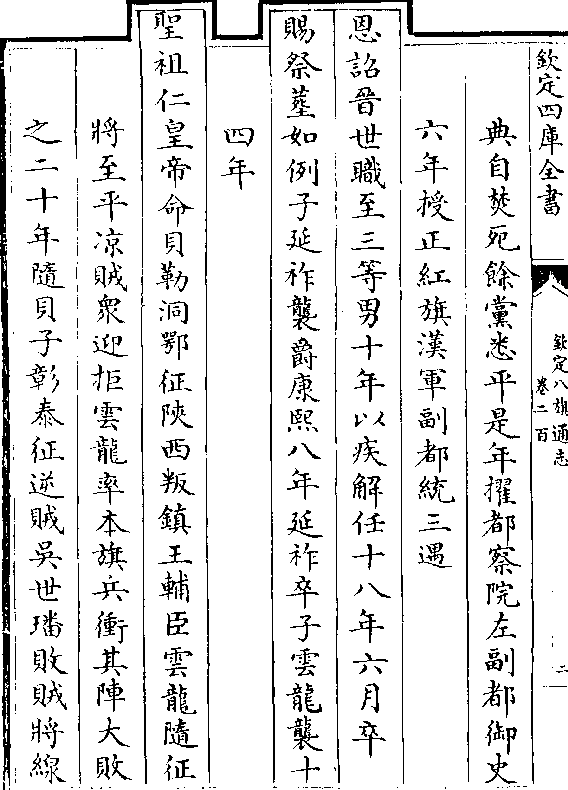 欽定四庫全書
欽定八旗通志
卷二百
二
典自焚死餘黨悉平是年擢都察院左副都御史
六年授正紅旗漢軍副都統三遇
恩詔晉世職至三等男十年以疾解任十八年六月卒
賜祭塟如例子延祚襲爵康熙八年延祚卒子雲龍襲十
四年
聖祖仁皇帝命貝勒洞鄂征陜西叛鎮王輔臣雲龍隨征
將至平凉賊衆迎拒雲龍率本旗兵衝其陣大敗
之二十年隨貝子彰泰征逆賊吳世璠敗賊將線